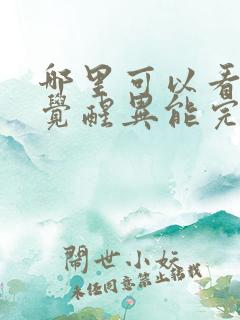 哪里可以看
覺醒異能完
鬧世小妖
未经同意禁止转载